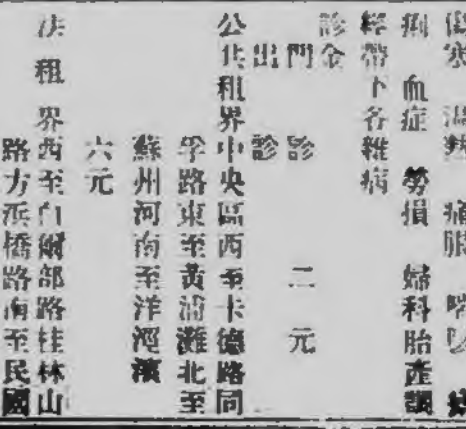 傷寒
痢 血症 勞損 婦科胎產調
經帶下各雜病
診金
門診 二元
出診
公共租界中央區西至卡德路同
孚路東至黃浦灘北至
蘇州河南至洋涇濱
六元
法租界西至白爾部路桂林山
路方浜橋路南至民國